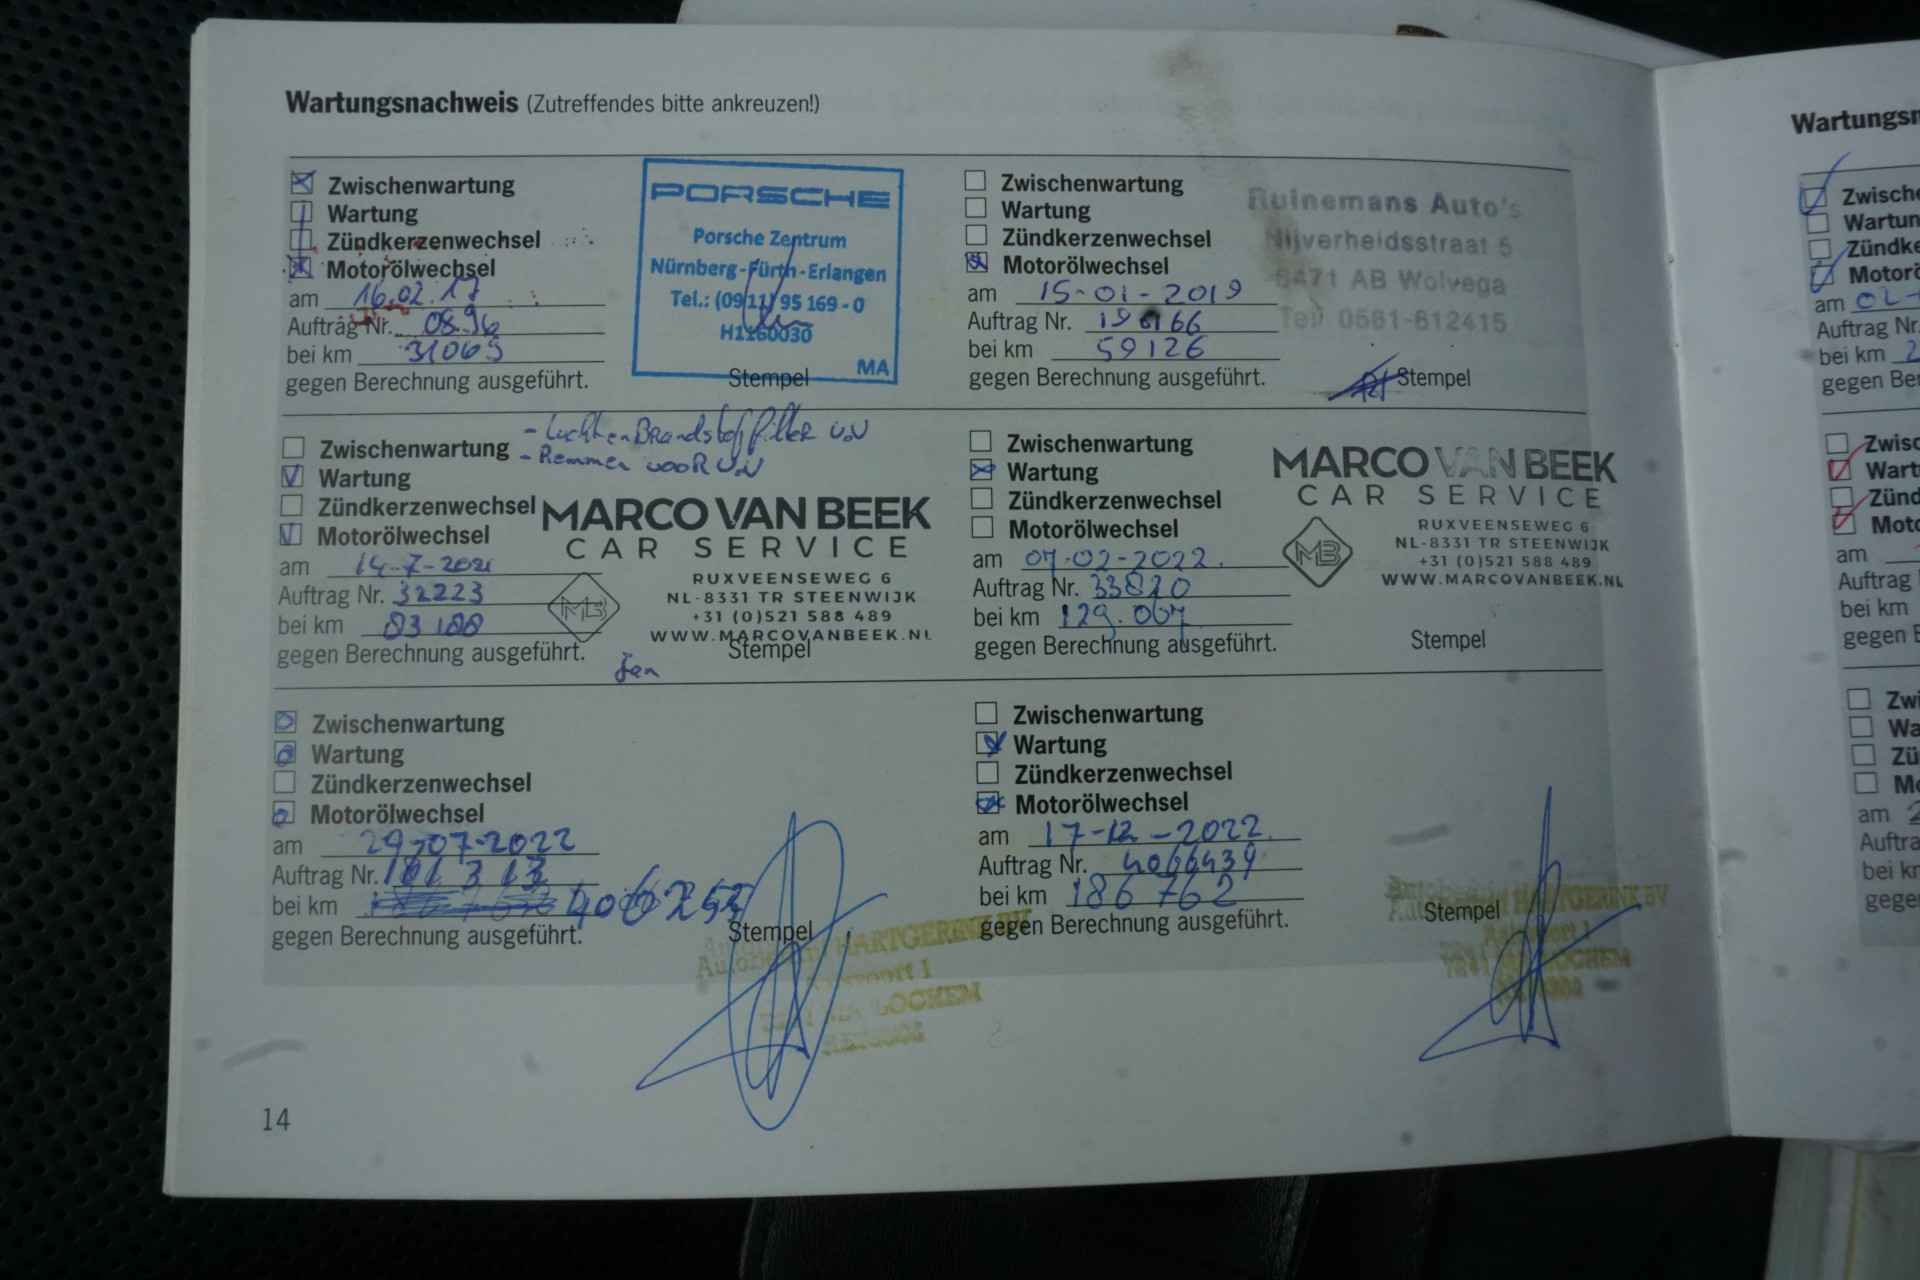 Wartungsnachweis (Zutreffendes bitte ankreuzen!)
Zwischenwartung
Wartung
Zündkerzenwechsel
Motorölwechsel
am 16.02.17
Auftrag Nr. 0896
bei km 31069
gegen Berechnung ausgeführt.
PORSCHE
Porsche Zentrum
Nürnberg-Fürth-Erlangen
Tel.: (0911) 95 169-0
H1160030
MA
Stempel
Zwischenwartung
Wartung
Zündkerzenwechsel
Motorölwechsel
am 15-01-2019
Auftrag Nr.
bei km 59126
gegen Berechnung ausgeführt.
Ruinemans Auto's
Nijverheidsstraat 5
8471 AB Wolvega
Tel. 0561-612415
Stempel
Zwischenwartung
Wartung
Zündkerzenwechsel
Motorölwechsel
am 14-7-2021
Auftrag Nr. 32223
bei km
gegen Berechnung ausgeführt.
- Remmen vooR
MARCO VAN BEEK
CAR SERVICE
MB
RUXVEENSEWEG 6
NL-8331 TR STEENWIJK
+31 (0)521 588 489
WWW.MARCOVANBEEK.NL
Stempel
Zwischenwartung
Wartung
Zündkerzenwechsel
Motorölwechsel
am 07-02-2022.
Auftrag Nr. 33820
bei km 129.007
gegen Berechnung ausgeführt.
MARCO VAN BEEK
CAR SERVICE
MB
RUXVEENSEWEG 6
NL-8331 TR STEENWIJK
+31 (0)521 588 489
WWW.MARCOVANBEEK.NL
Stempel
Zwischenwartung
Wartung
Zündkerzenwechsel
Motorölwechsel
am 29-07-2022
Auftrag Nr.
bei km
gegen Berechnung ausgeführt.
Stempel
HARTGERINK BV
LOCHEM
Zwischenwartung
Wartung
Zündkerzenwechsel
Motorölwechsel
am 17-12-2022.
Auftrag Nr. 4066439
bei km 186762
gegen Berechnung ausgeführt.
Stempel
HARTGERINK BV
LOCHEM
14
Wartungsn
Zwische
Wartun
Zündke
Motorö
am
Auftrag Nr.
bei km
gegen Ber
Zwisc
Wart
Zünd
Moto
am
Auftrag
bei km
gegen B
Zwi
Wa
Zü
Mo
am
Auftra
bei k
gege